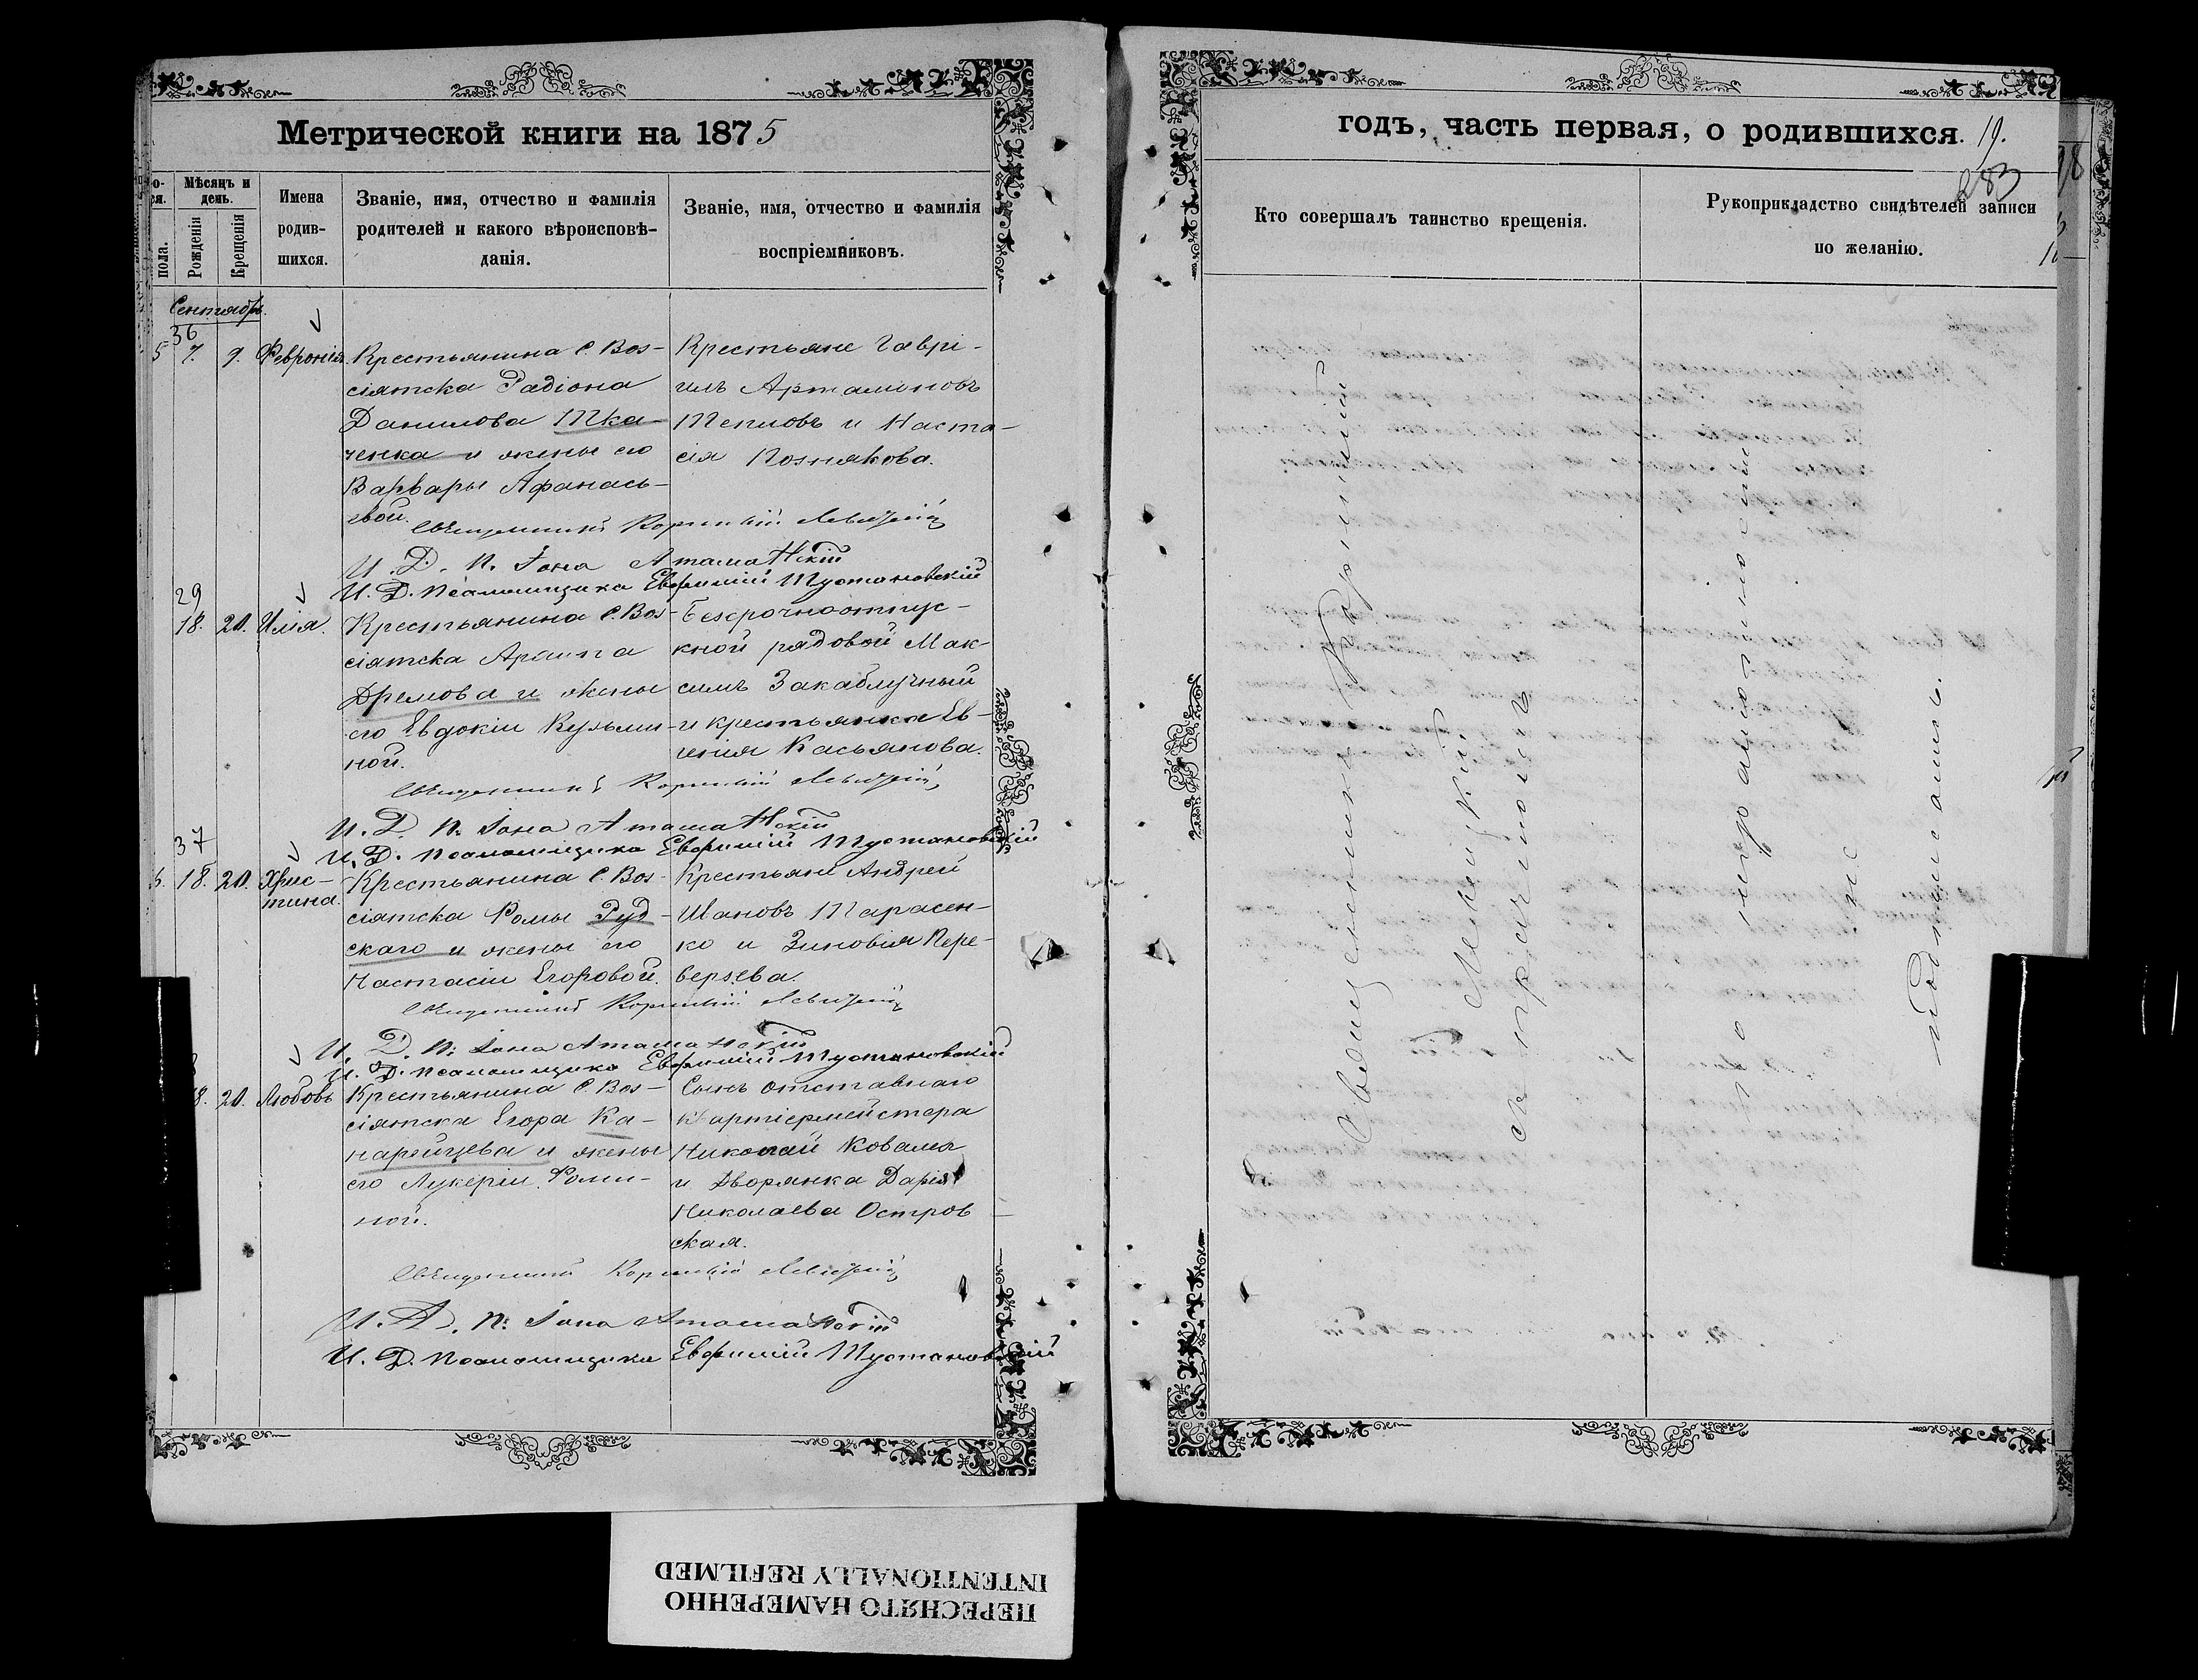 Метрической книги на 1875
Мѣсяцъ и день.
пола.
Рожденія
Крещенія
Имена родив-
шихся.
Званіе, имя, отчество и фамилія
родителей и какого вѣроисповѣ-
данія.
Званіе, имя, отчество и фамилія
воспріемниковъ.
Сентябрь.
36
5 7. 9. Февронія.
Крестьянина С. Вос-
сіятска Радіона
Данилова Тка-
ченка и жены его
Варвары Афанась-
евой.
Крестьяне Гаврі-
илъ Артамоновъ
Тепловъ и Наста-
сія Познякова.
Священникъ Корнилій
И. Д. П. Іона Атаманскій
И. Д. Псаломщика Евфимій Тустановскій
29
18. 20. Илія.
Крестьянина С. Вос-
сіятска Архипа
Дремова и жены
его Евдокіи Кузьми-
ной.
Безсрочноотпус-
кной рядовой Мак-
симъ Закаблучный
и крестьянка Ев-
генія Касьянова.
Священникъ Корнилій
И. Д. П. Іона Атаманскій
И. Д. Псаломщика Евфимій Тустановскій
37
18. 20. Хрис-
тина.
Крестьянина С. Вос-
сіятска Фомы Руд-
скаго и жены его
Настасіи Егоровой.
Крестьяне Андрей
Ивановъ Тарасен-
ко и Зиновія Пере-
верзева.
Священникъ Корнилій
И. Д. П. Іона Атаманскій
И. Д. Псаломщика Евфимій Тустановскій
8. 20. Любовь
Крестьянина С. Вос-
сіятска Егора Ка-
нарейцева и жены
его Лукеріи Фоми-
ной.
Сынъ отставнаго
квартіермейстера
Николай Коваля
и Дворянка Дарія
Николаева Остров-
ская.
Священникъ Корнилій
И. Д. П. Іона Атаманскій
И. Д. Псаломщика Евфимій Тустановскій
годъ, часть первая, о родившихся. 19.
283
Кто совершалъ таинство крещенія.
Рукоприкладство свидѣтелей записи
по желанію.
Священникъ Корнилій
съ причтомъ
не
подписались.
ПЕРЕСНЯТО НАМЕРЕННО
INTENTIONALLY REFILMED